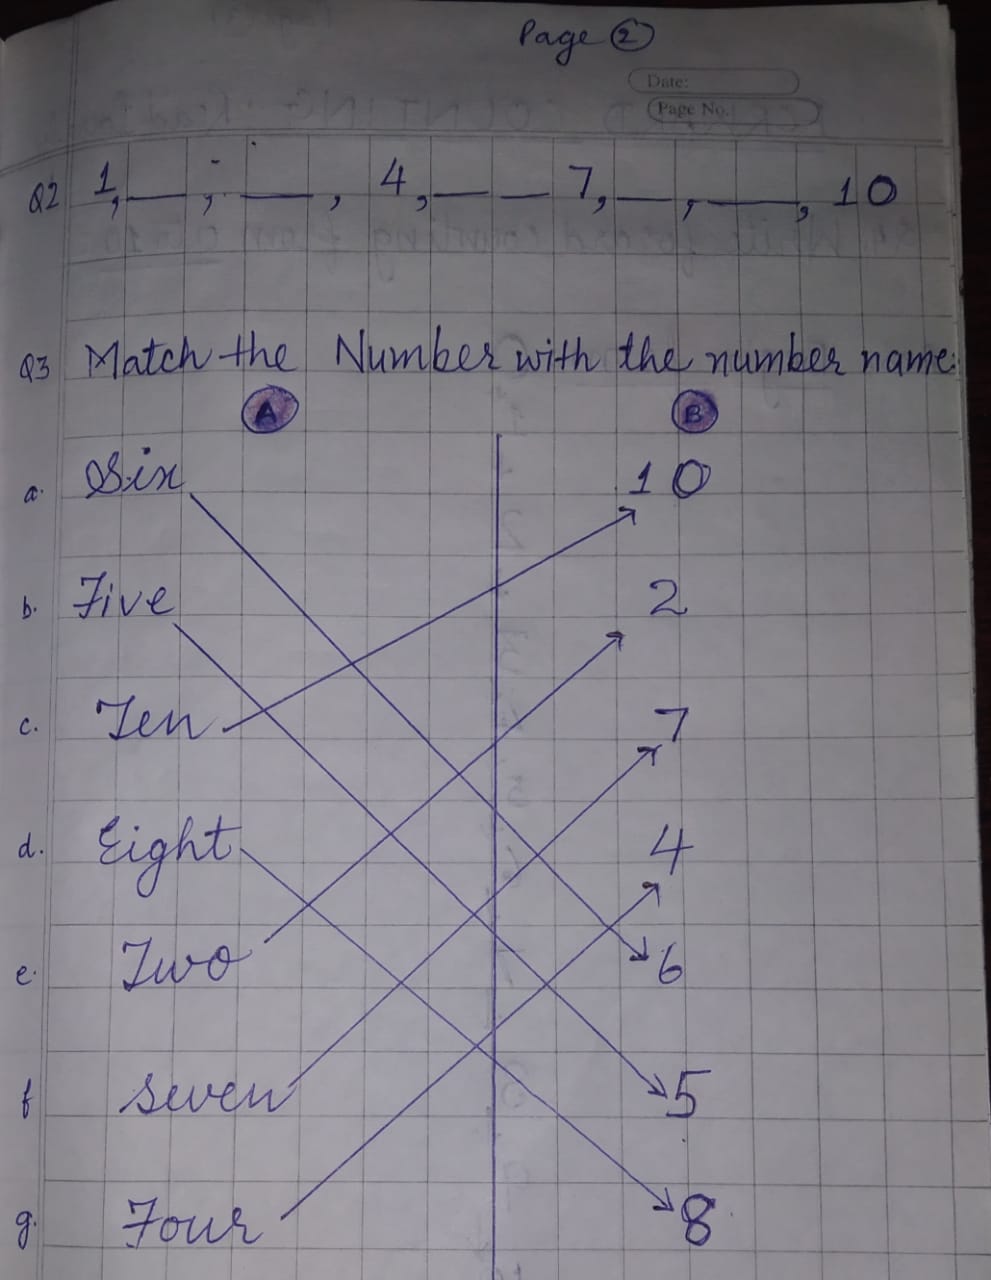 Page 2
Date:
Page No.
Q2 1, __, __, 4, __ __ 7, __, __, 10
Q3 Match the Number with the number name.
A B
a. Six 10
b. Five 2
c. Ten 7
d. Eight 4
e. Two 6
f seven 5
g. Four 8